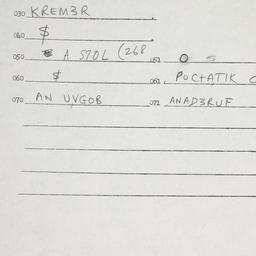 030 KREM3R
040 $
050 A STOL (268 051 0 5
060 $ 061 POCTATIK
070 AN UVGOB 071 ANAD3RUF